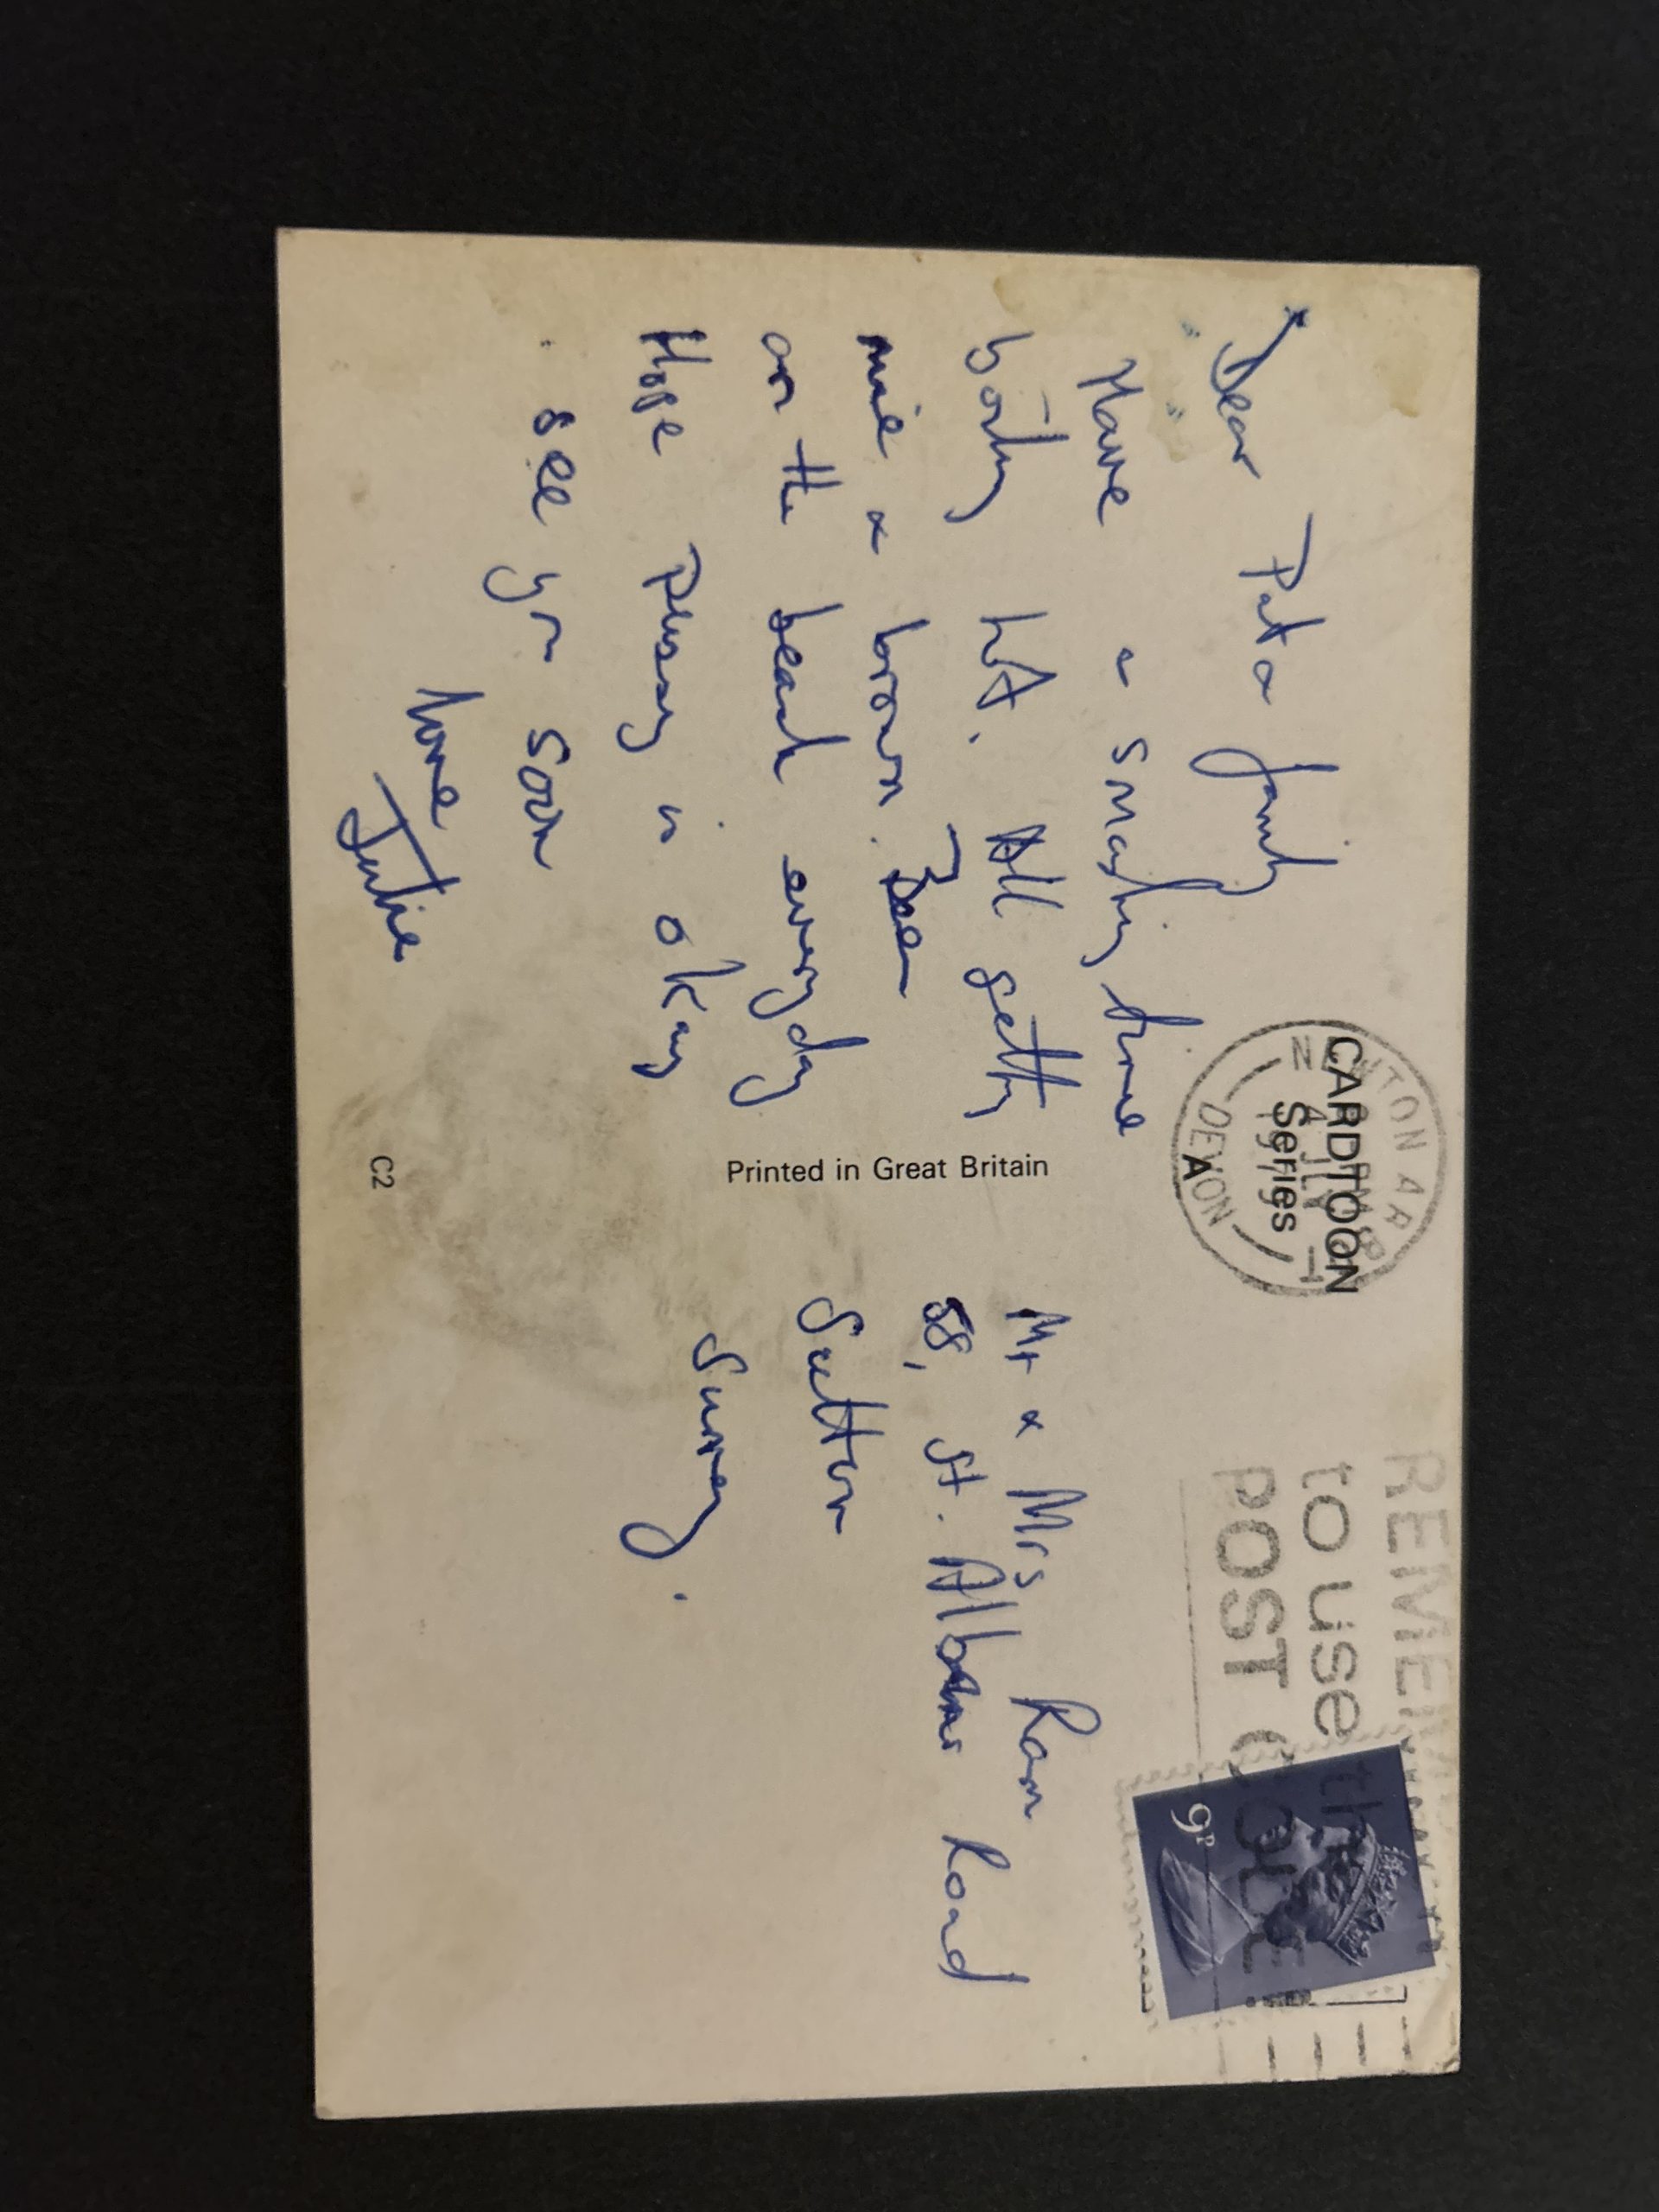 Dear Pat & family
Have a smashing time
boiling hot. All getting
nice & brown. Been
on the beach everyday
Hope pussy is okay
see you soon
love
Julie
CARDTOON
Series
A
Printed in Great Britain
C2
DEVON
1979
REMEMBER
to use the
POST CODE
9P
Mr & Mrs
58, St. Albans Road
Sutton
Surrey.